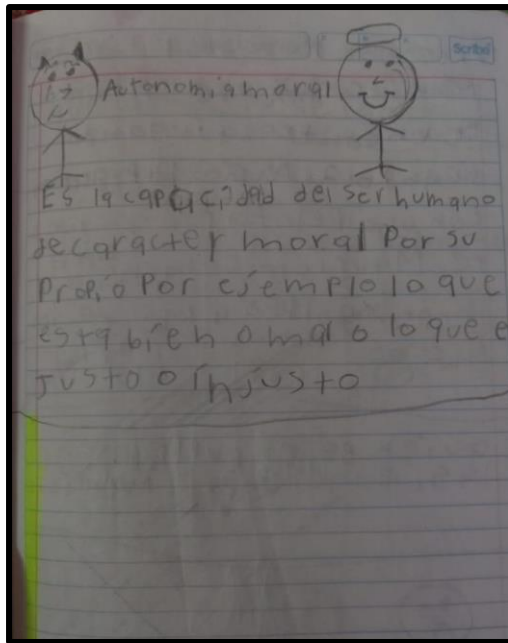 Scribe
Autonomia moral
Es la capacidad del ser humano
de caracter moral Por su
Propio Por ejemplo lo que
esta bien o mal o lo que e
justo o injusto